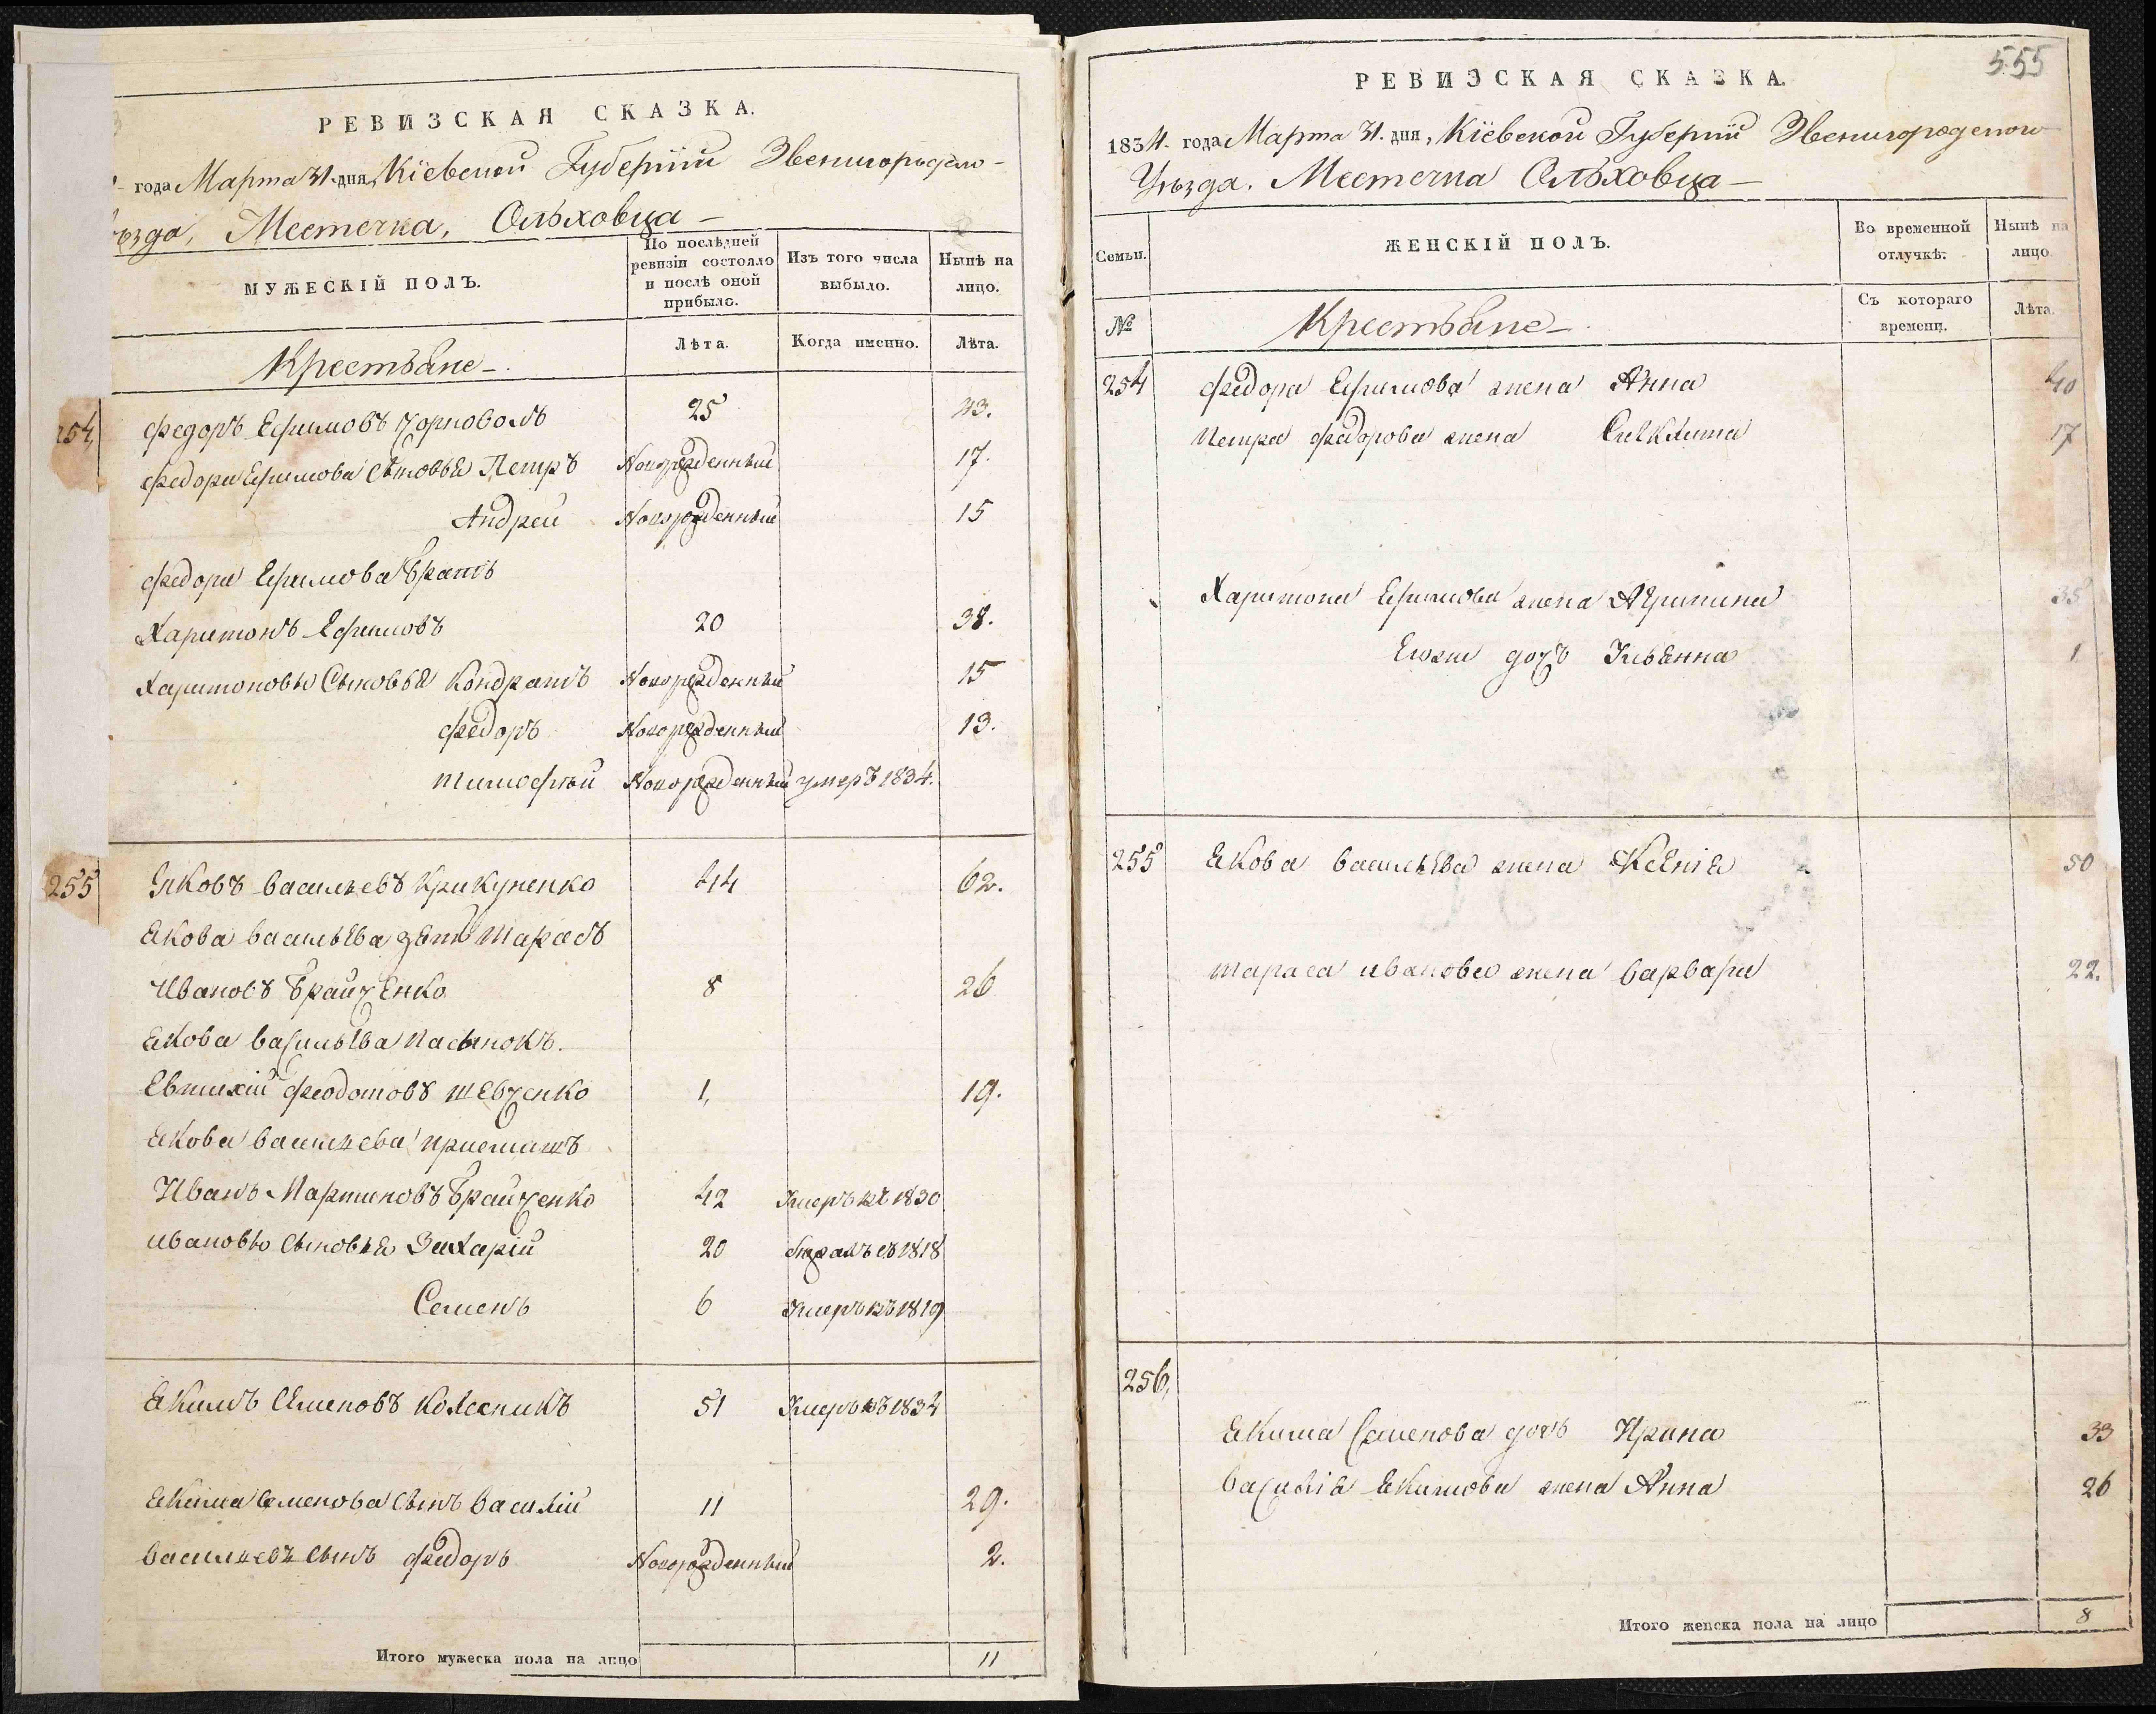 РЕВИЗСКАЯ СКАЗКА.
года Марта 31. дня, Кіевской Губерніи Звенигородско-
ѣзда, Местечка, Ольховца –
МУЖЕСКІЙ ПОЛЪ.
По послѣдней ревизіи состояло и послѣ оной прибыло.
Изъ того числа выбыло.
Нынѣ на лицо.
Крестьяне –
Лѣта.
Когда именно.
Лѣта.
254, Федоръ Ефимовъ Чорноволъ 25 43.
Федора Ефимова Сыновья Петръ Новорожденный 17.
Андрей Новорожденный 15
Федора Ефимова братъ
Харитонъ Ефимовъ 20 38.
Харитоновы Сыновья Кондратъ Новорожденный 15
Федоръ Новорожденный 13.
тимофѣй Новорожденный умеръ 1834.
255 Яковъ васильевъ Крикуненко 44 62.
Якова васильева зять тарасъ
Ивановъ Брайченко 8 26
Якова васильева пасынокъ.
Евтихій Феодотовъ шевченко 1, 19.
Якова васильева приемышъ
Иванъ Мартиновъ Брайченко 42 Умеръ въ 1830
ивановы сыновья Захарій 20 въ 1818
Семенъ 6 Умеръ въ 1819
Якимъ Семеновъ Колесникъ 51 Умеръ въ 1834
Якима Семенова сынъ василій 11 29.
васильевъ сынъ Федоръ Новорожденный 2.
Итого мужеска пола на лицо 11
555
РЕВИЗСКАЯ СКАЗКА.
1834. года Марта 31. дня, Кіевской Губерніи Звенигородского
Уѣзда. Местечка Ольховца –
Семьи.
ЖЕНСКІЙ ПОЛЪ.
Во временной отлучкѣ.
Нынѣ на лицо
№
Крестьяне –
Съ котораго времени.
Лѣта.
254 Федора Ефимова жена Анна 40
Петра Федорова жена Сиклита 17
Харитона Ефимова жена Агрипина 35
Его дочь Ульянна 1
255 Якова васильева жена Ксенія 50
тараса иванова жена варвара 22.
256,
Якима Семенова дочь Ирина 33
василія Якимова жена Анна 26
Итого женска пола на лицо 8